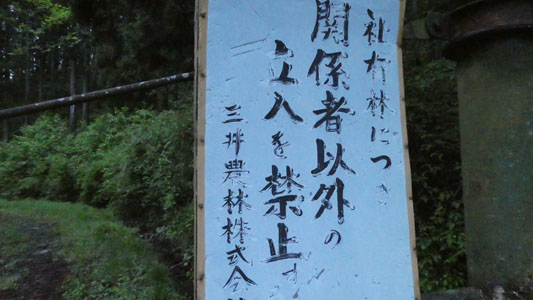 社有林につき
関係者以外の
立入を禁止す
三井農林株式会